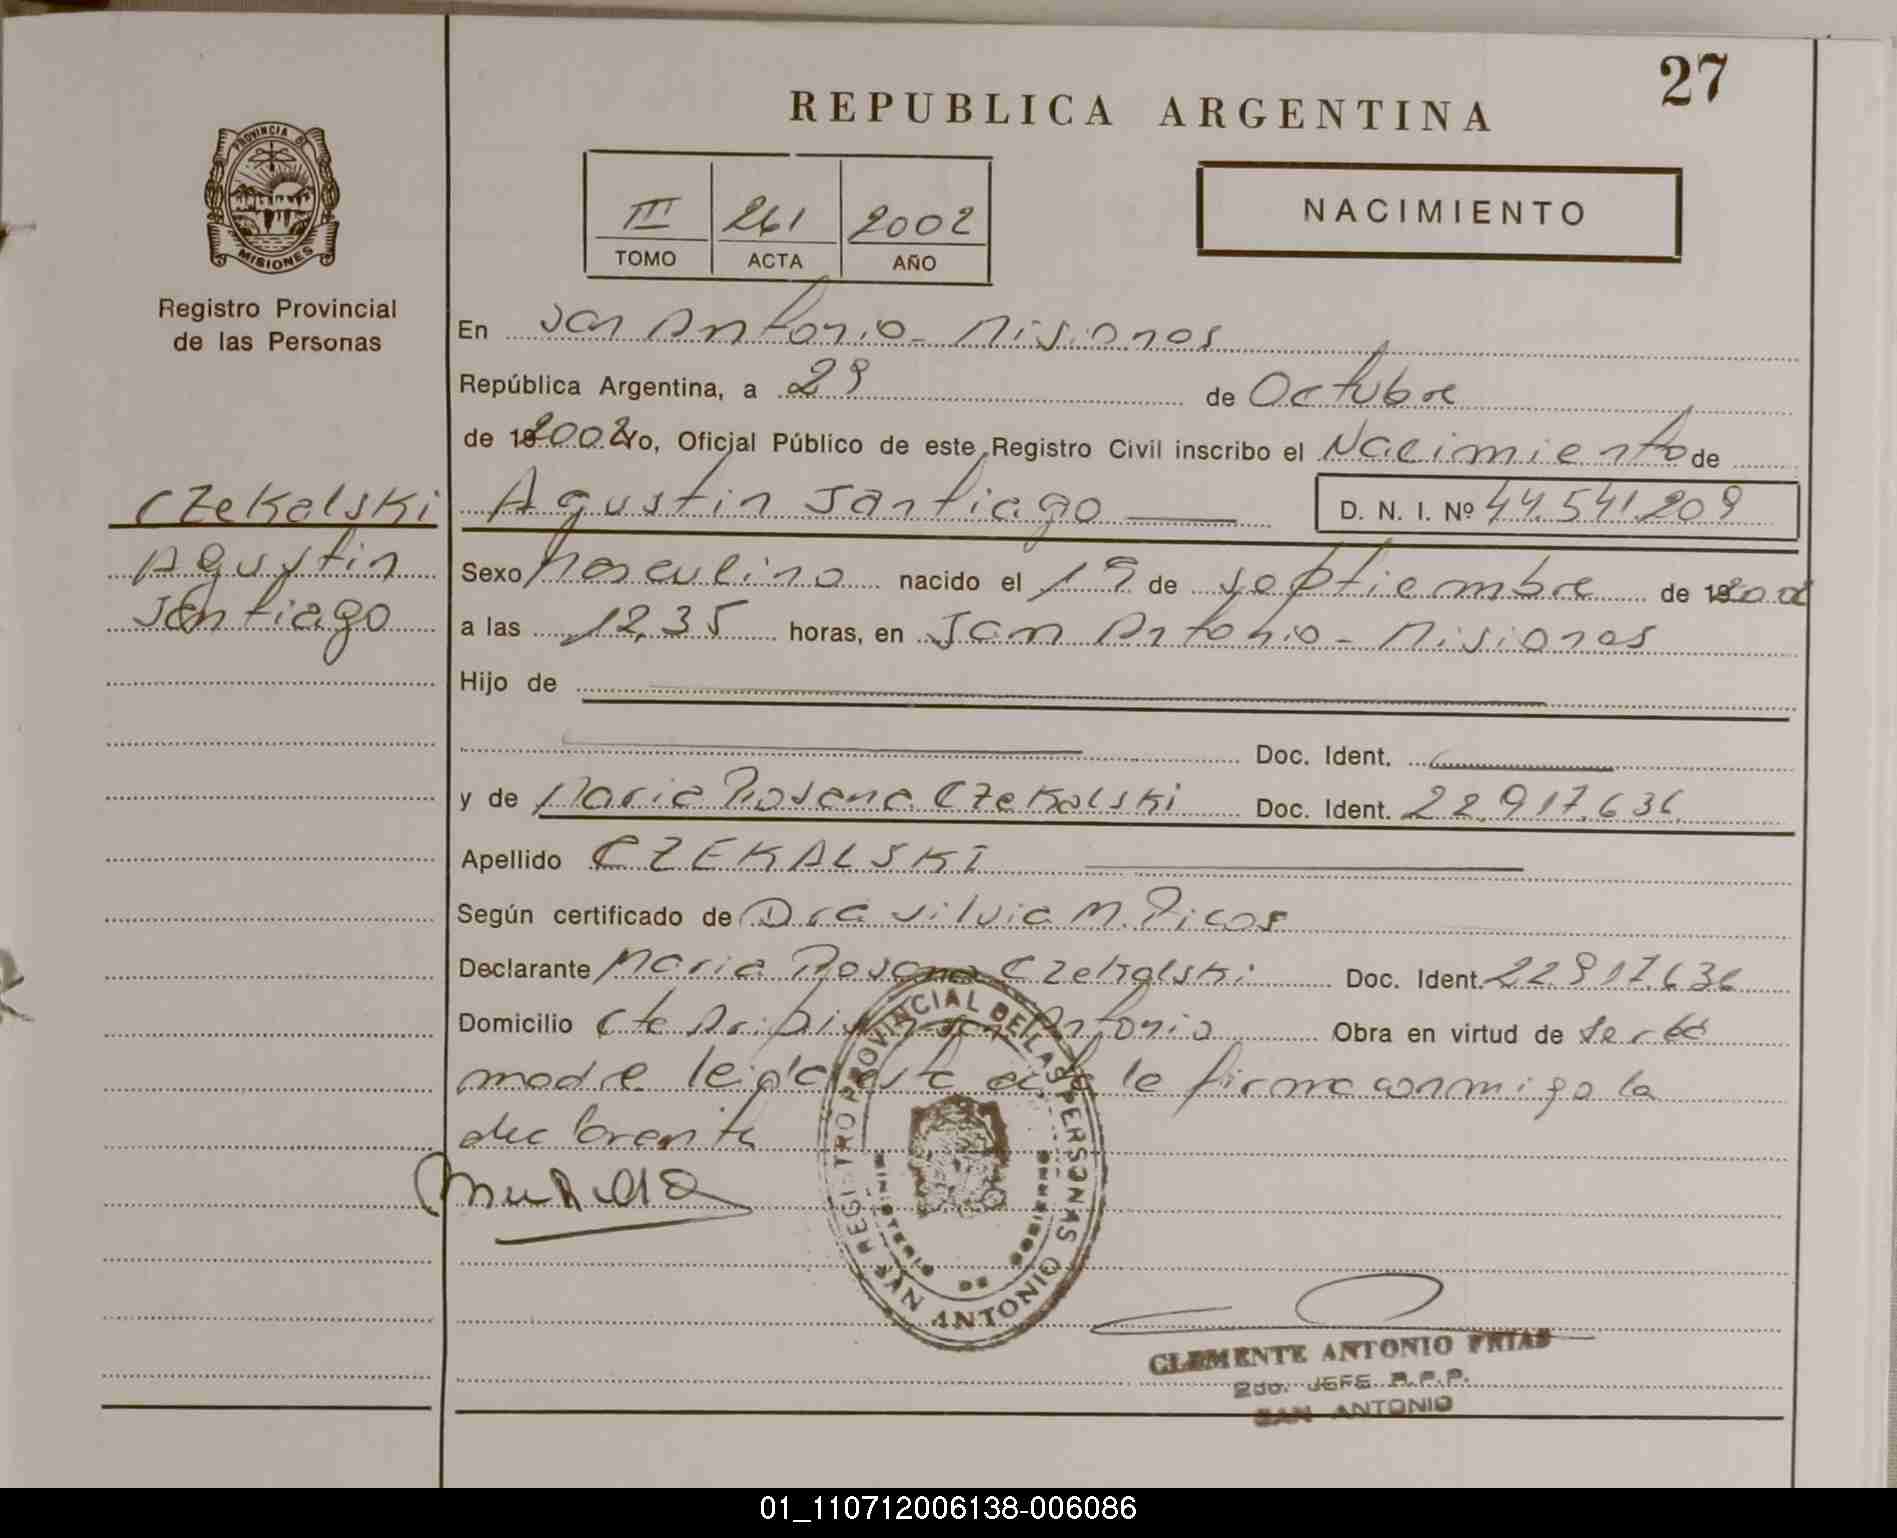 27
REPUBLICA ARGENTINA
PROVINCIA DE
MISIONES
Registro Provincial
de las Personas
III 261 2002
TOMO ACTA AÑO
NACIMIENTO
En San Antonio - Misiones
República Argentina, a 29 de Octubre
de 192002 Yo, Oficial Público de este Registro Civil inscribo el Nacimiento de
Czekalski
Agustin
Santiago
Agustin Santiago D. N. I. Nº 44.541.209
Sexo Masculino nacido el 19 de Septiembre de 192002
a las 12,35 horas, en San Antonio - Misiones
Hijo de
Doc. Ident.
y de Maria Rosana Czekalski Doc. Ident. 22.917.636
Apellido CZEKALSKI
Según certificado de Dra Silvia M. Picos
Declarante Maria Rosana Czekalski Doc. Ident. 22.917.636
Domicilio Cte San Antonio Obra en virtud de ser la
madre leida esta acta la firma conmigo la
declarante
REGISTRO PROVINCIAL DE LAS PERSONAS
MINISTERIO DE GOBIERNO
SAN ANTONIO
CLEMENTE ANTONIO FRIAS
2do. JEFE R.P.P.
SAN ANTONIO
01_110712006138-006086